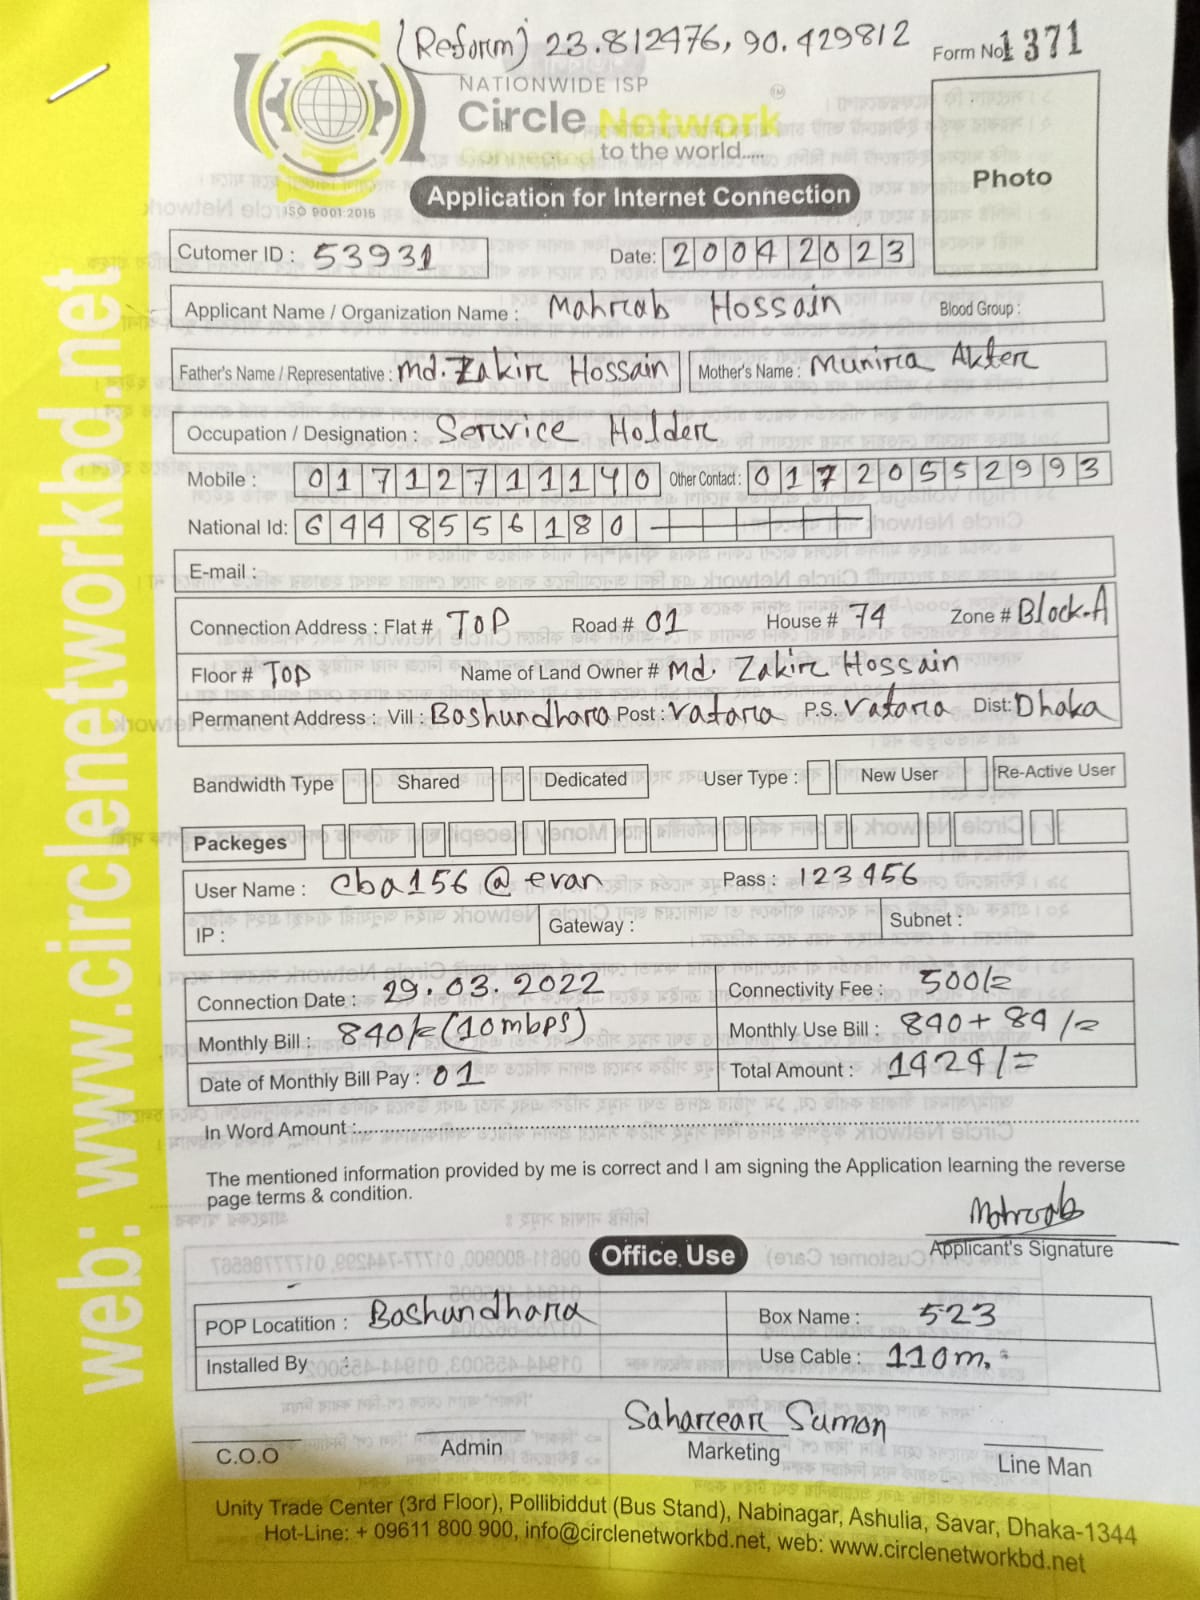 (Reform) 23.812476, 90.429812
Form No: 1371
NATIONWIDE ISP
Circle Network
Connected to the world.....
ISO 9001:2015
Application for Internet Connection
Photo
Cutomer ID : 53931
Date: 20042023
Applicant Name / Organization Name : Mahrab Hossain Blood Group :
Father's Name / Representative : Md. Zakir Hossain Mother's Name : Munira Akter
Occupation / Designation : Service Holder
Mobile : 01712711140 Other Contact : 01720552993
National Id: 6448556180
E-mail :
Connection Address : Flat # TOP Road # 01 House # 74 Zone # Block-A
Floor # Top Name of Land Owner # Md. Zakir Hossain
Permanent Address : Vill : Boshundhara Post : Vatara P.S. Vatara Dist: Dhaka
Bandwidth Type Shared Dedicated User Type : New User Re-Active User
Packeges
User Name : cba156@evan Pass : 123456
IP : Gateway : Subnet :
Connection Date : 29.03.2022 Connectivity Fee : 500/=
Monthly Bill : 840/= (10mbps) Monthly Use Bill : 840+84/=
Date of Monthly Bill Pay : 01 Total Amount : 1424/=
In Word Amount :
The mentioned information provided by me is correct and I am signing the Application learning the reverse
page terms & condition.
Mahrab
Applicant's Signature
Office Use
POP Locatition : Boshundhara Box Name : 523
Installed By : Use Cable : 110m.
Sahareear Sumon
C.O.O Admin Marketing Line Man
Unity Trade Center (3rd Floor), Pollibiddut (Bus Stand), Nabinagar, Ashulia, Savar, Dhaka-1344
Hot-Line: + 09611 800 900, info@circlenetworkbd.net, web: www.circlenetworkbd.net
web: www.circlenetworkbd.net